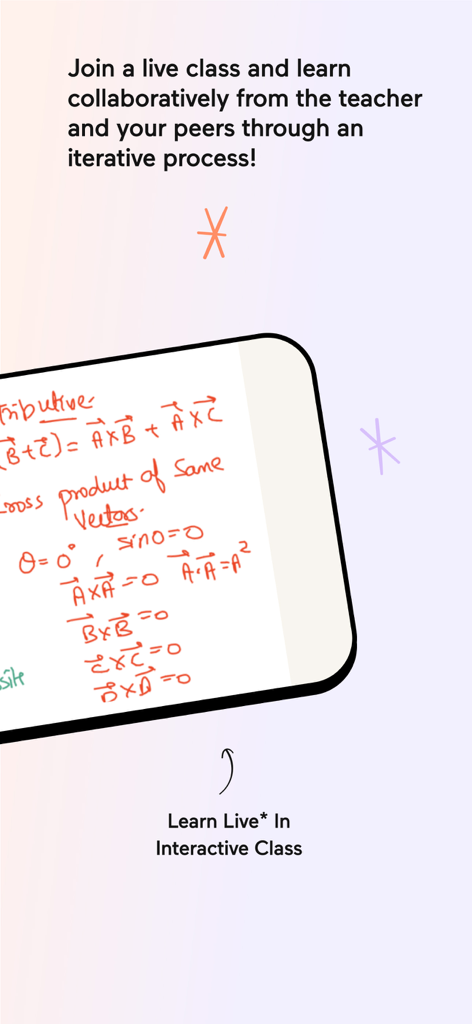 Join a live class and learn
collaboratively from the teacher
and your peers through an
iterative process!
tributive
(B⃗+C⃗)= A⃗×B⃗ + A⃗×C⃗
cross product of Same
Vectors.
θ=0° , sin0=0
A⃗×A⃗=0 A⃗·A⃗=A²
B⃗×B⃗=0
C⃗×C⃗=0
D⃗×D⃗=0
site
Learn Live* In
Interactive Class